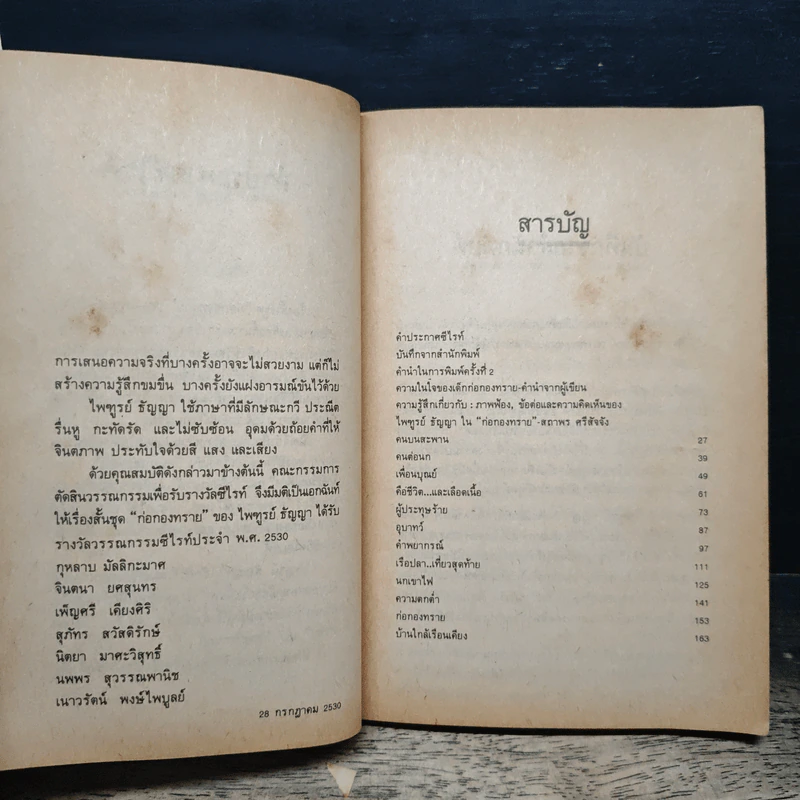 การเสนอความจริงที่บางครั้งอาจจะไม่สวยงาม แต่ก็ไม่
สร้างความรู้สึกขมขื่น บางครั้งยังแฝงอารมณ์ขันไว้ด้วย
ไพฑูรย์ ธัญญา ใช้ภาษาที่มีลักษณะกวี ประณีต
รื่นหู กะทัดรัด และไม่ซับซ้อน อุดมด้วยถ้อยคำที่ให้
จินตภาพ ประทับใจด้วยสี แสง และเสียง
ด้วยคุณสมบัติดังกล่าวมาข้างต้นนี้ คณะกรรมการ
ตัดสินวรรณกรรมเพื่อรับรางวัลซีไรท์ จึงมีมติเป็นเอกฉันท์
ให้เรื่องสั้นชุด “ก่อกองทราย” ของ ไพฑูรย์ ธัญญา ได้รับ
รางวัลวรรณกรรมซีไรท์ประจำ พ.ศ. 2530
กุหลาบ มัลลิกะมาศ
จินตนา ยศสุนทร
เพ็ญศรี เคียงศิริ
สุภัทร สวัสดิรักษ์
นิตยา มาศะวิสุทธิ์
นพพร สุวรรณพานิช
เนาวรัตน์ พงษ์ไพบูลย์
28 กรกฎาคม 2530
สารบัญ
คำประกาศซีไรท์
บันทึกจากสำนักพิมพ์
คำนำในการพิมพ์ครั้งที่ 2
ความในใจของเด็กก่อกองทราย-คำนำจากผู้เขียน
ความรู้สึกเกี่ยวกับ : ภาพฟ้อง, ข้อต่อและความคิดเห็นของ
ไพฑูรย์ ธัญญา ใน “ก่อกองทราย”-สถาพร ศรีสัจจัง
คนบนสะพาน 27
คนต่อนก 39
เพื่อนบุณย์ 49
คือชีวิต...และเลือดเนื้อ 61
ผู้ประทุษร้าย 73
อุบาทว์ 87
คำพยากรณ์ 97
เรือปลา..เที่ยวสุดท้าย 111
นกเขาไฟ 125
ความตกต่ำ 141
ก่อกองทราย 153
บ้านใกล้เรือนเคียง 163